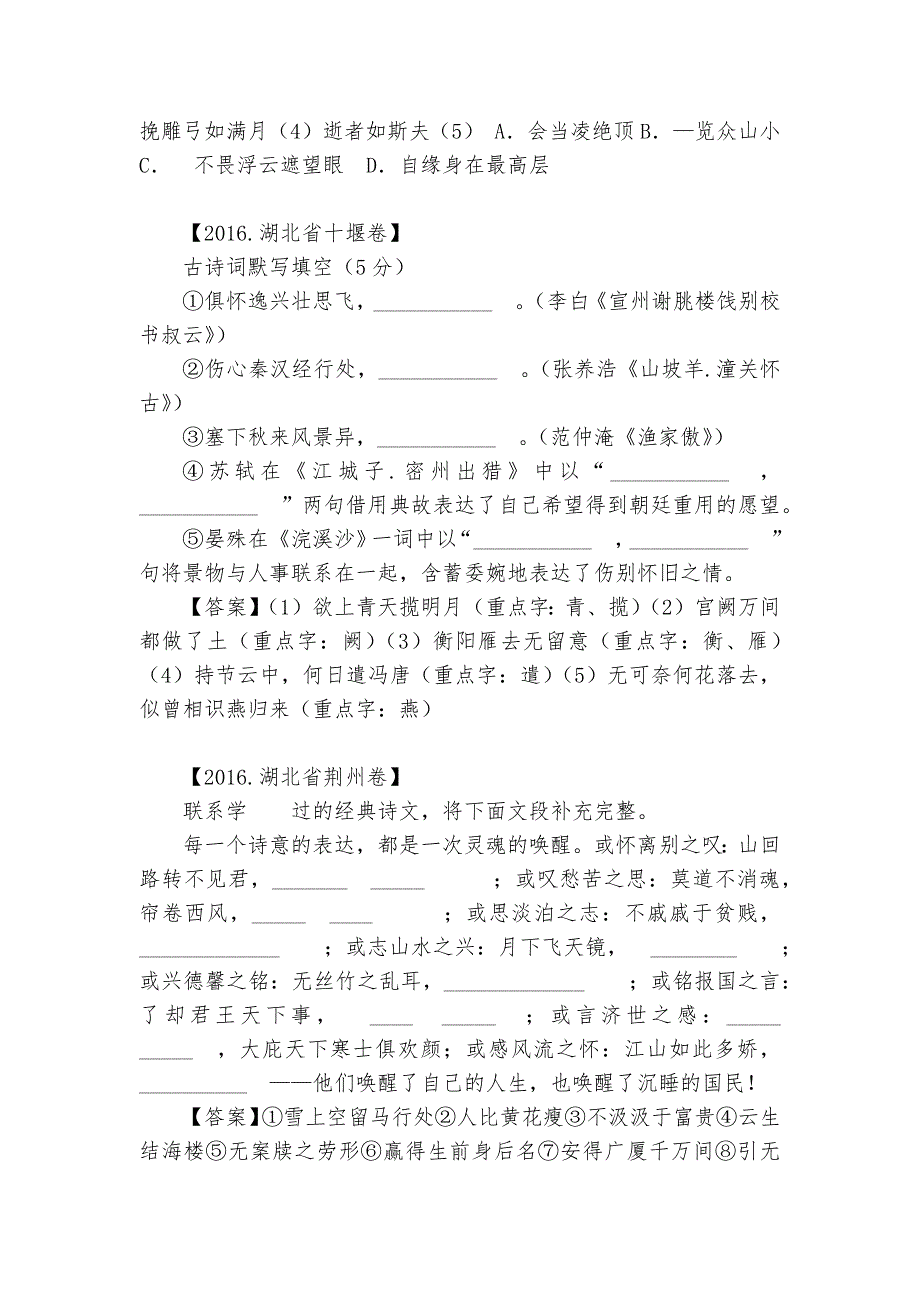 挽雕弓如满月（4）逝者如斯夫（5） A．会当凌绝顶 B．—览众山小
C． 不畏浮云遮望眼 D．自缘身在最高层
【2016.湖北省十堰卷】
古诗词默写填空（5 分）
①俱怀逸兴壮思飞，___________ 。（李白《宣州谢朓楼饯别校
书叔云》）
②伤心秦汉经行处，___________ 。（张养浩《山坡羊.潼关怀
古》）
③塞下秋来风景异，___________ 。（范仲淹《渔家傲》）
④苏轼在《江城子.密州出猎》中以“___________ ，
___________ ”两句借用典故表达了自己希望得到朝廷重用的愿望。
⑤晏殊在《浣溪沙》一词中以“___________ ，___________ ”
句将景物与人事联系在一起，含蓄委婉地表达了伤别怀旧之情。
【答案】（1）欲上青天揽明月（重点字：青、揽）（2）宫阙万间
都做了土（重点字：阙）（3）衡阳雁去无留意（重点字：衡、雁）
（4）持节云中，何日遣冯唐（重点字：遣）（5）无可奈何花落去，
似曾相识燕归来（重点字：燕）
【2016.湖北省荆州卷】
联系学 过的经典诗文，将下面文段补充完整。
每一个诗意的表达，都是一次灵魂的唤醒。或怀离别之叹：山回
路转不见君，_______ _____ ；或叹愁苦之思：莫道不消魂，
帘卷西风，_____ ____ ；或思淡泊之志：不戚戚于贫贱，
_____________ ；或志山水之兴：月下飞天镜， ________ ；
或兴德馨之铭：无丝竹之乱耳，_____________ ；或铭报国之言：
了却君王天下事， ____ _____ ；或言济世之感：_____
_____ ，大庇天下寒士俱欢颜；或感风流之怀：江山如此多娇，
__________ ——他们唤醒了自己的人生，也唤醒了沉睡的国民！
【答案】①雪上空留马行处②人比黄花瘦③不汲汲于富贵④云生
结海楼⑤无案牍之劳形⑥赢得生前身后名⑦安得广厦千万间⑧引无